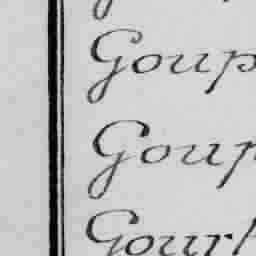 Goup
Goup
Gourl